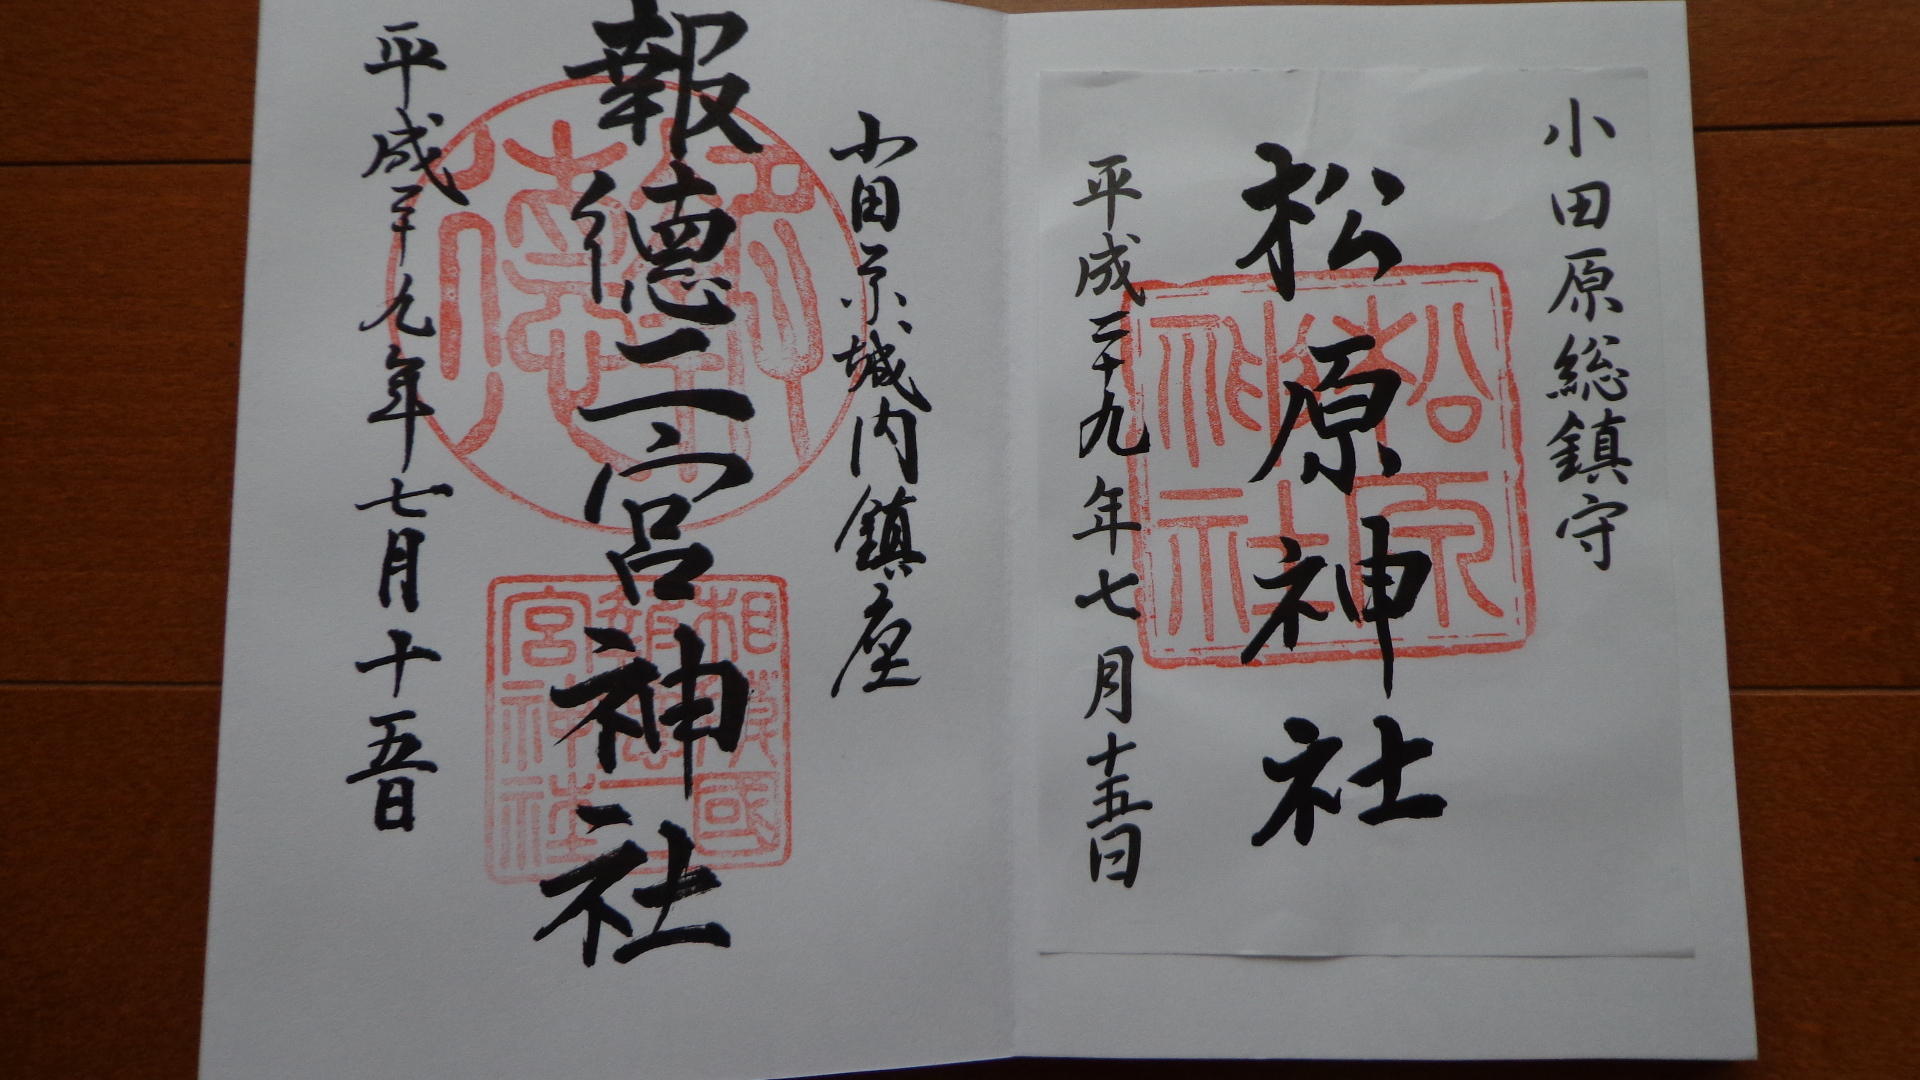 小田原総鎮守
松原神社
松原神社
平成二十九年七月十五日
小田原城内鎮座
報徳二宮神社
報徳
相模國報徳二宮神社
平成二十九年七月十五日